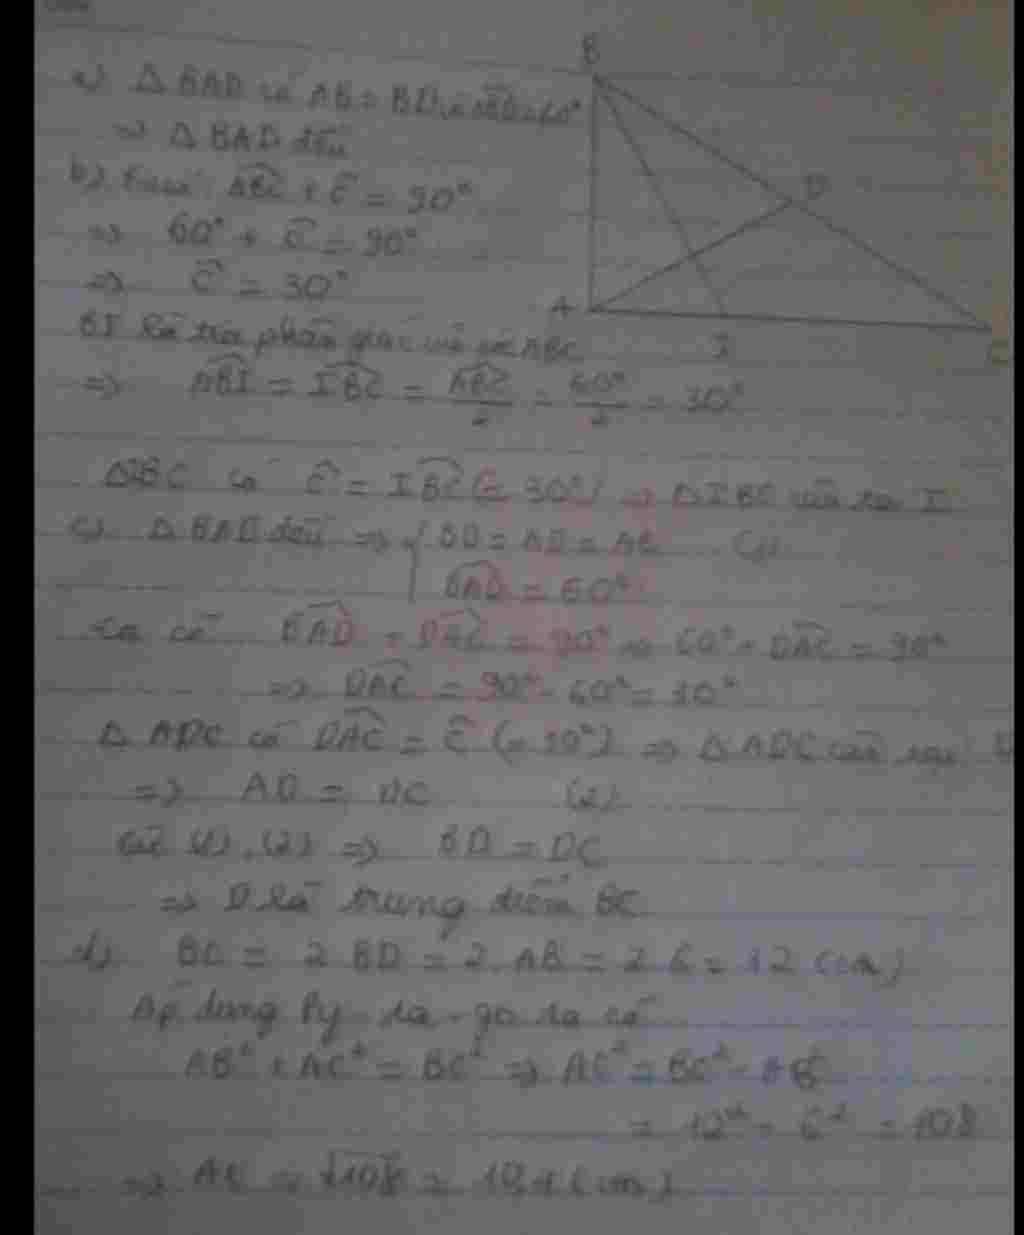 a) △BAD có AB = BD, ABD = 60°
=> △BAD đều
b) Ta có: ABC + C = 90°
=> 60° + C = 90°
=> C = 30°
BI là tia phân giác của góc ABC
=> ABI = IBC = ABC/2 = 60°/2 = 30°
△IBC có C = IBC (= 30°) => △IBC cân tại I
c) △BAD đều => { BD = AD = AB (1)
BAD = 60°
Ta có BAD + DAC = 90° => 60° + DAC = 90°
=> DAC = 90° - 60° = 30°
△ADC có DAC = C (= 30°) => △ADC cân tại
=> AD = DC (2)
từ (1), (2) => BD = DC
=> D là trung điểm BC
d) BC = 2 BD = 2. AB = 2.6 = 12 (cm)
Áp dụng Py-ta-go ta có
AB² + AC² = BC² => AC² = BC² - AB²
= 12² - 6² = 108
=> AC = √108 = 10,4 (cm)
B
D
A
I
C